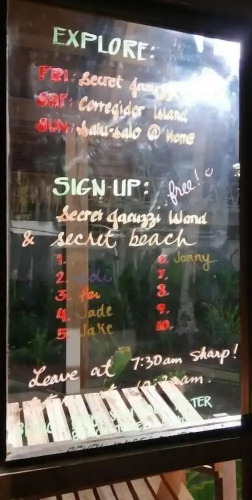 EXPLORE:
FRI: Secret Jacuzzi
SAT: Corregidor Island
SUN: Salu-Salo @ Home
SIGN-UP: ...free!
Secret Jacuzzi Island
& secret beach
1. 6. Janny
2. 7.
3. 8.
4. Jade 9.
5. Jake 10.
Leave at 7:30am sharp!